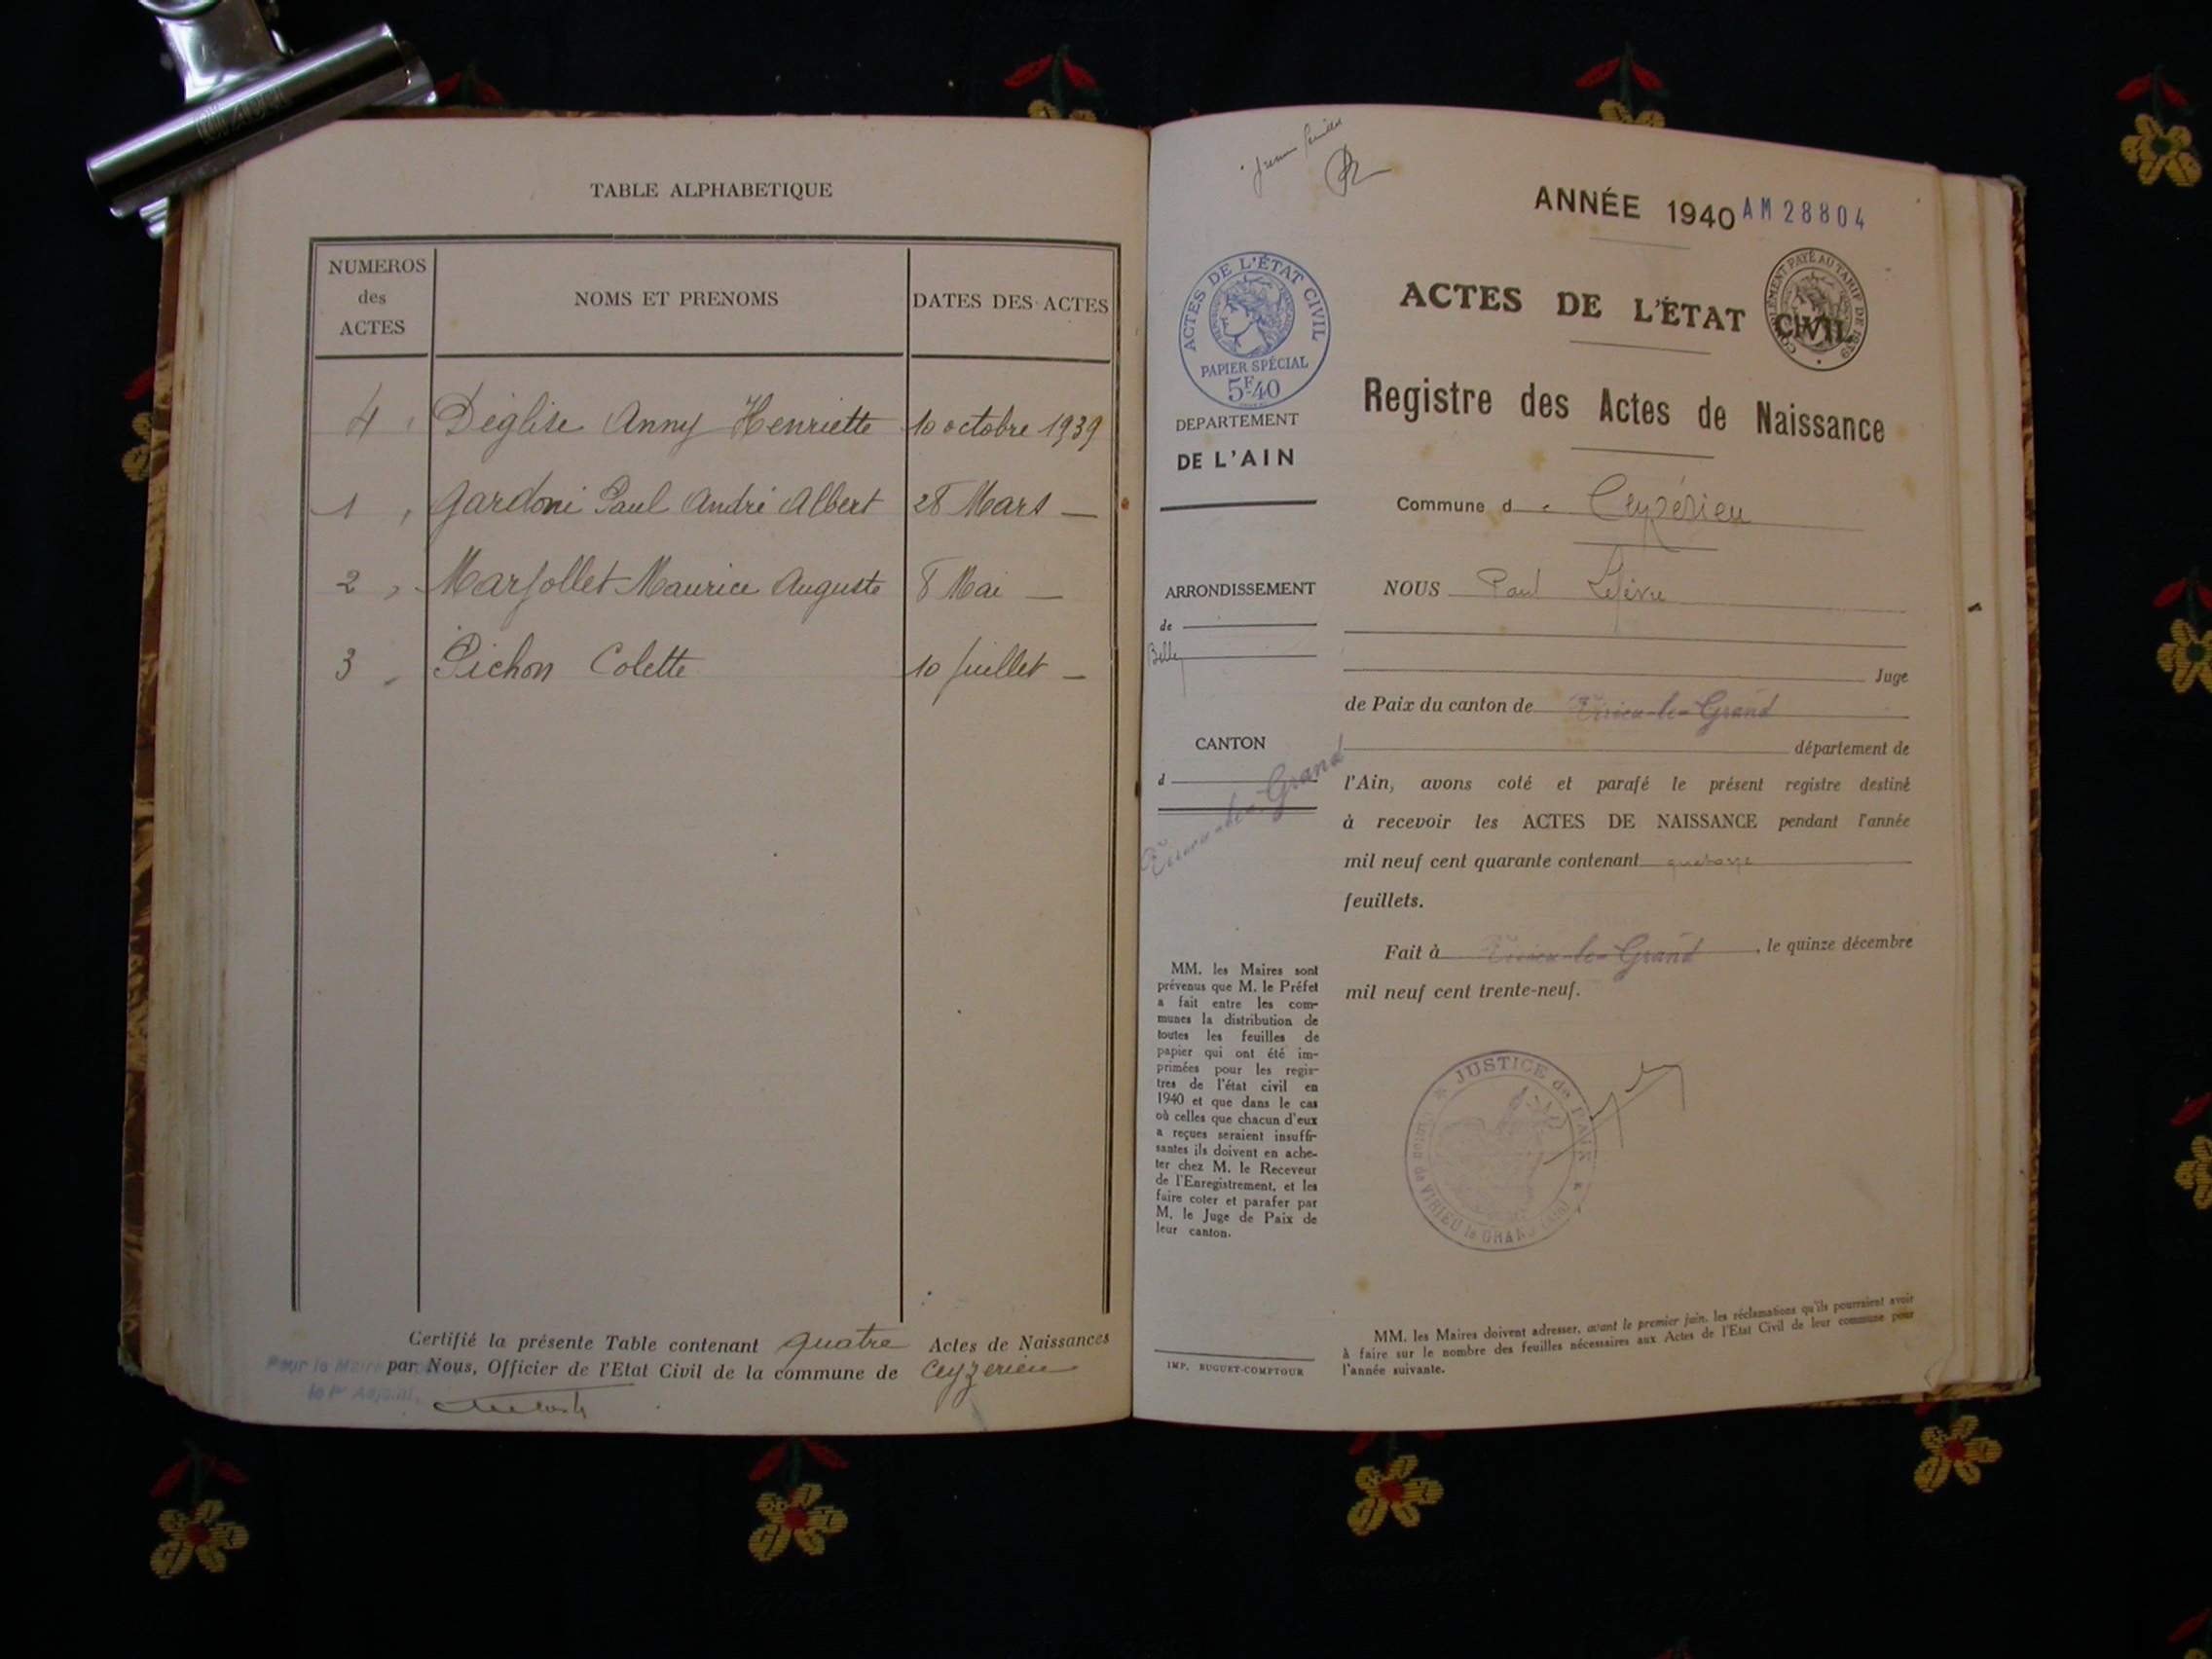 TABLE ALPHABETIQUE
NUMEROS
des
ACTES
NOMS ET PRENOMS
DATES DES ACTES
4 Déglise Anny Henriette 10 octobre 1939
1 Gardoni Paul André Albert 28 Mars —
2 Marjollet Maurice Auguste 8 Mai —
3 Pichon Colette 10 Juillet —
Certifié la présente Table contenant quatre Actes de Naissances
par Nous, Officier de l'Etat Civil de la commune de Ceyzerieu
Pour le Maire
le 1er Adjoint,
ANNÉE 1940 AM 28804
ACTES DE L'ÉTAT CIVIL
PAPIER SPÉCIAL
5F40
COMPLÉMENT PAYÉ AU TARIF DE 1939
ACTES DE L'ÉTAT CIVIL
Registre des Actes de Naissance
DEPARTEMENT
DE L'AIN
Commune d Ceyzérieu
ARRONDISSEMENT
de
Belley
NOUS Paul Lefèvre
Juge
de Paix du canton de Virieu-le-Grand
CANTON
d
Virieu-le-Grand
département de
l'Ain, avons coté et parafé le présent registre destiné
à recevoir les ACTES DE NAISSANCE pendant l'année
mil neuf cent quarante contenant quatorze
feuillets.
Fait à Virieu-le-Grand, le quinze décembre
mil neuf cent trente-neuf.
MM. les Maires sont
prévenus que M. le Préfet
a fait entre les com-
munes la distribution de
toutes les feuilles de
papier qui ont été im-
primées pour les regis-
tres de l'état civil en
1940 et que dans le cas
où celles que chacun d'eux
a reçues seraient insuffi-
santes ils doivent en ache-
ter chez M. le Receveur
de l'Enregistrement, et les
faire coter et parafer par
M. le Juge de Paix de
leur canton.
JUSTICE de PAIX
Canton de VIRIEU le GRAND (Ain)
MM. les Maires doivent adresser, avant le premier juin, les réclamations qu'ils pourraient avoir
à faire sur le nombre des feuilles nécessaires aux Actes de l'Etat Civil de leur commune pour
l'année suivante.
IMP. BUGUET-COMPTOUR